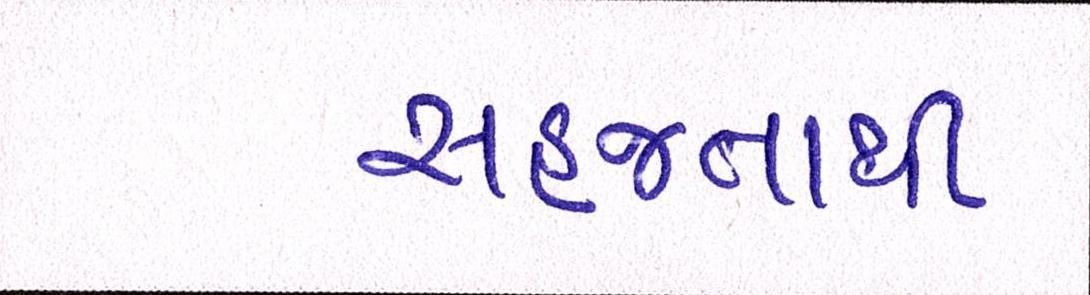 સહજતાથી